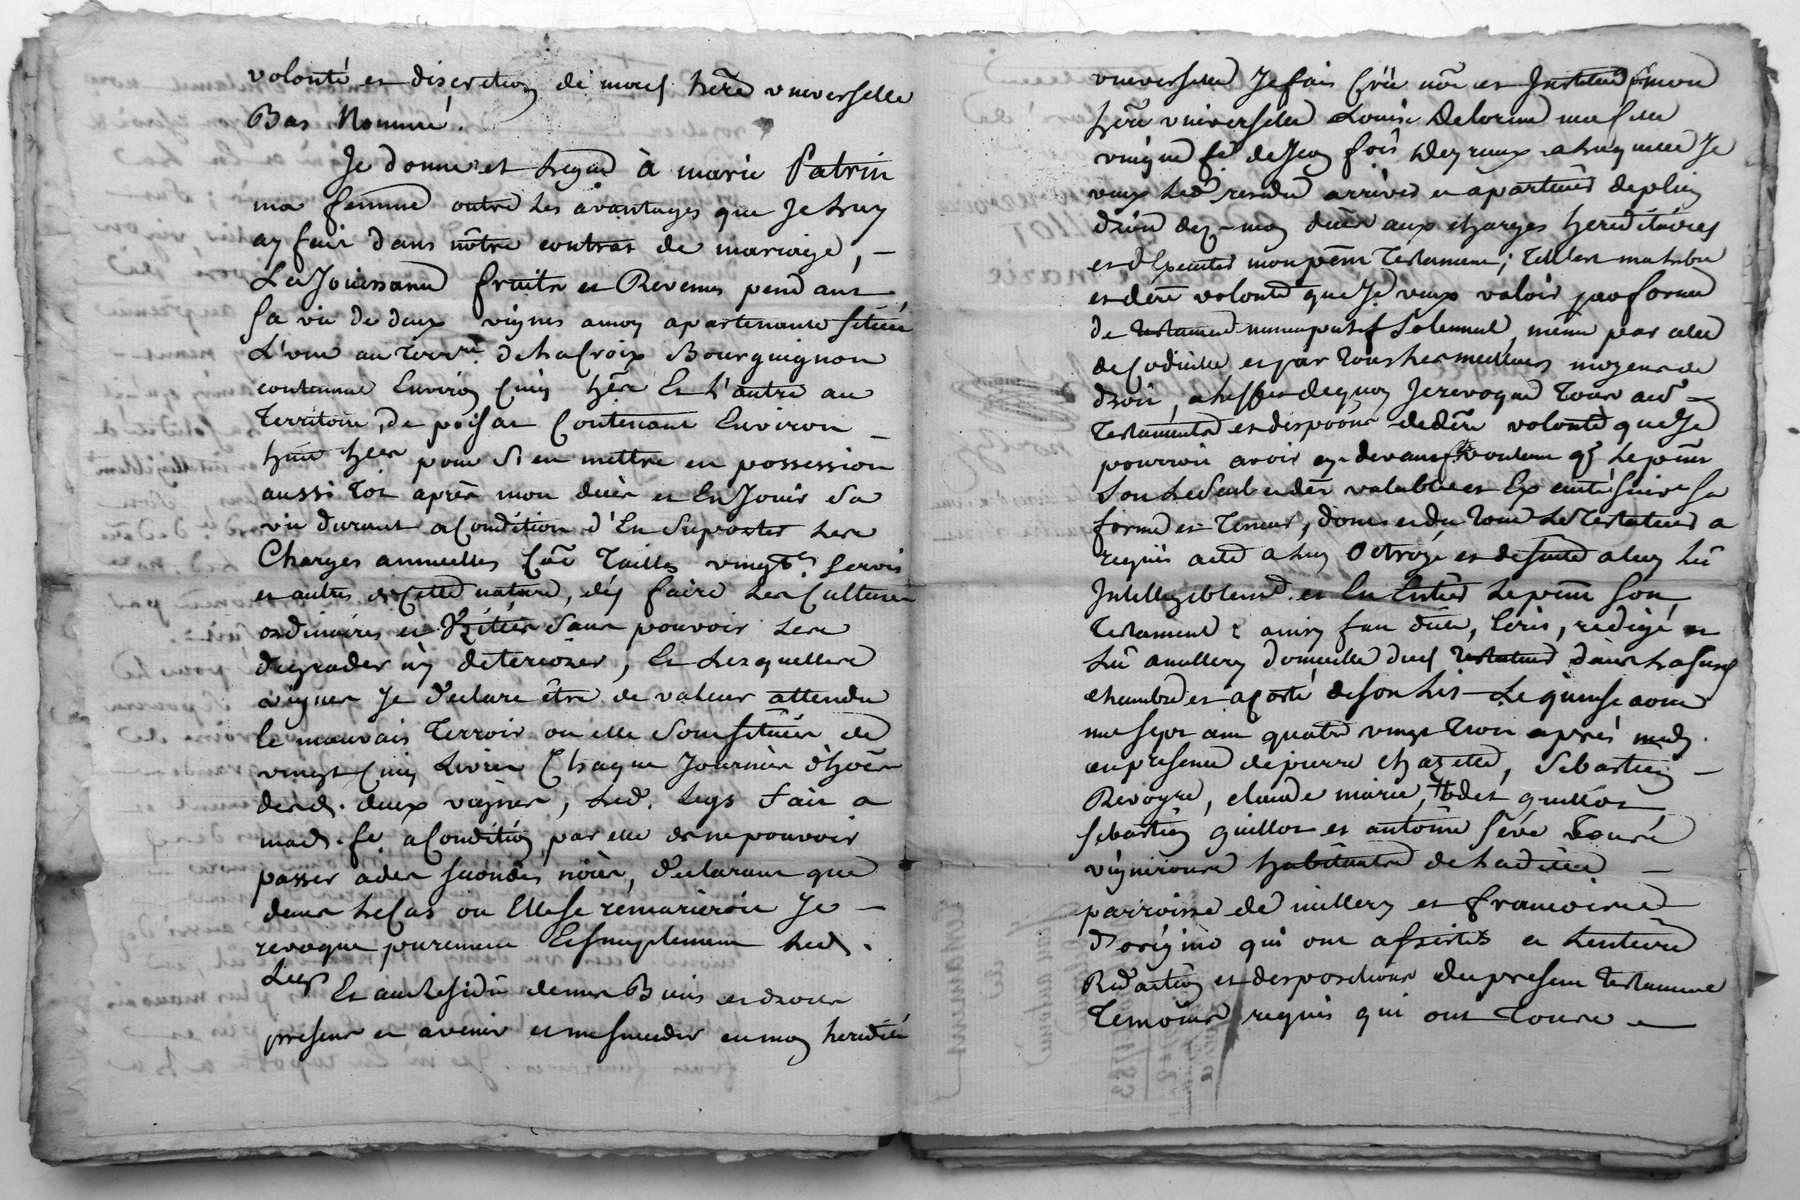 volonté et discretion de mond. hére universelle
Bas Nommé.
Je donne et Legue à marie Patrin
ma femme outre les avantages que Je Luy
ay fait dans nôtre contrat de mariage, –
La Jouissance fruits et Revenus pendant
sa vie de deux vignes a moy apartenante située
L'une au Terrre. de La Croix Bourguignon
contenant Environ Cinq hées Et L'autre au
Territoire, de Contenant Environ –
huit hées pour S'en mettre en possession
aussi Tot aprés mon decés et En Jouir Sa
vie durant a Condition d'En Suporter Les
Charges annuelles Côe Tailles vingte. servis
et autres de Cette nature, d'y faire Les Cultures
ordinaires et sans pouvoir Les
degrader n'y deteriorer, Et Lesquelles
vignes Je declare être de valeur attendu
le mauvais Terroir ou elle sont situées de
vingt Cinq Livres Chaque Journée d'hoe
desd. deux vignes, Led. Legs fait a
mad. fe. a Condition par elle de ne pouvoir
passer a des secondes nôces, declarant que
dans Le Cas ou Elle se remarieroit Je –
revoque purement Et simplement Led.
Legs
Et au Residu de mes Biens et droits
present et avenir et me succeder en moy heredité
universelle Je fais Créé nôe et Institue pr mon
hére universelle Louise Delorme ma fille
vingne fe. de Jean fois a Laquelle Je
veux Led. residu arriver et apartenir de plein
droit dez mon decés aux charges hereditaires
et d'Executer mon pént Testament; Telle est ma trbe
et dére volonté que Je veux valoir par forme
de Testament nuncupatif Solemnel, même par celle
de Codicille et par Tous Les meilleurs moyens de
droit, a L'effet de quoy Je revoque Tous aus –
Testaments et dispoons de dére volonté que Je
pourrois avoir cy-devant fait voulant qe Le pént
Soit Le Seul et dér valable et Executé suivt Sa
forme et Teneur, dont et du Tout Led Testateur a
requis acte a Luy Octroyé et desuite a Luy Lû
Intelligiblemt. et En Entier Le pént Son
Testament ainsy fait dicté, Ecrit, redigé et
Lû a millery domicille dud Testateur dans La sus
chambre et a Costé de son Lit Le quinse aout
mil sept cent quatre vingt Trois aprés midy.
en presence de pierre Chazette, Sebastien –
Revoyre, claude marie, guillot
Sebastien guillot et antoine Séve Tous
vignerons habitants de Laditte –
parroisse de millery et francoise
d'origine qui ont assistés a L'entiére
Redaction et dispositions du present Testament
Temoins requis qui ont Tous –